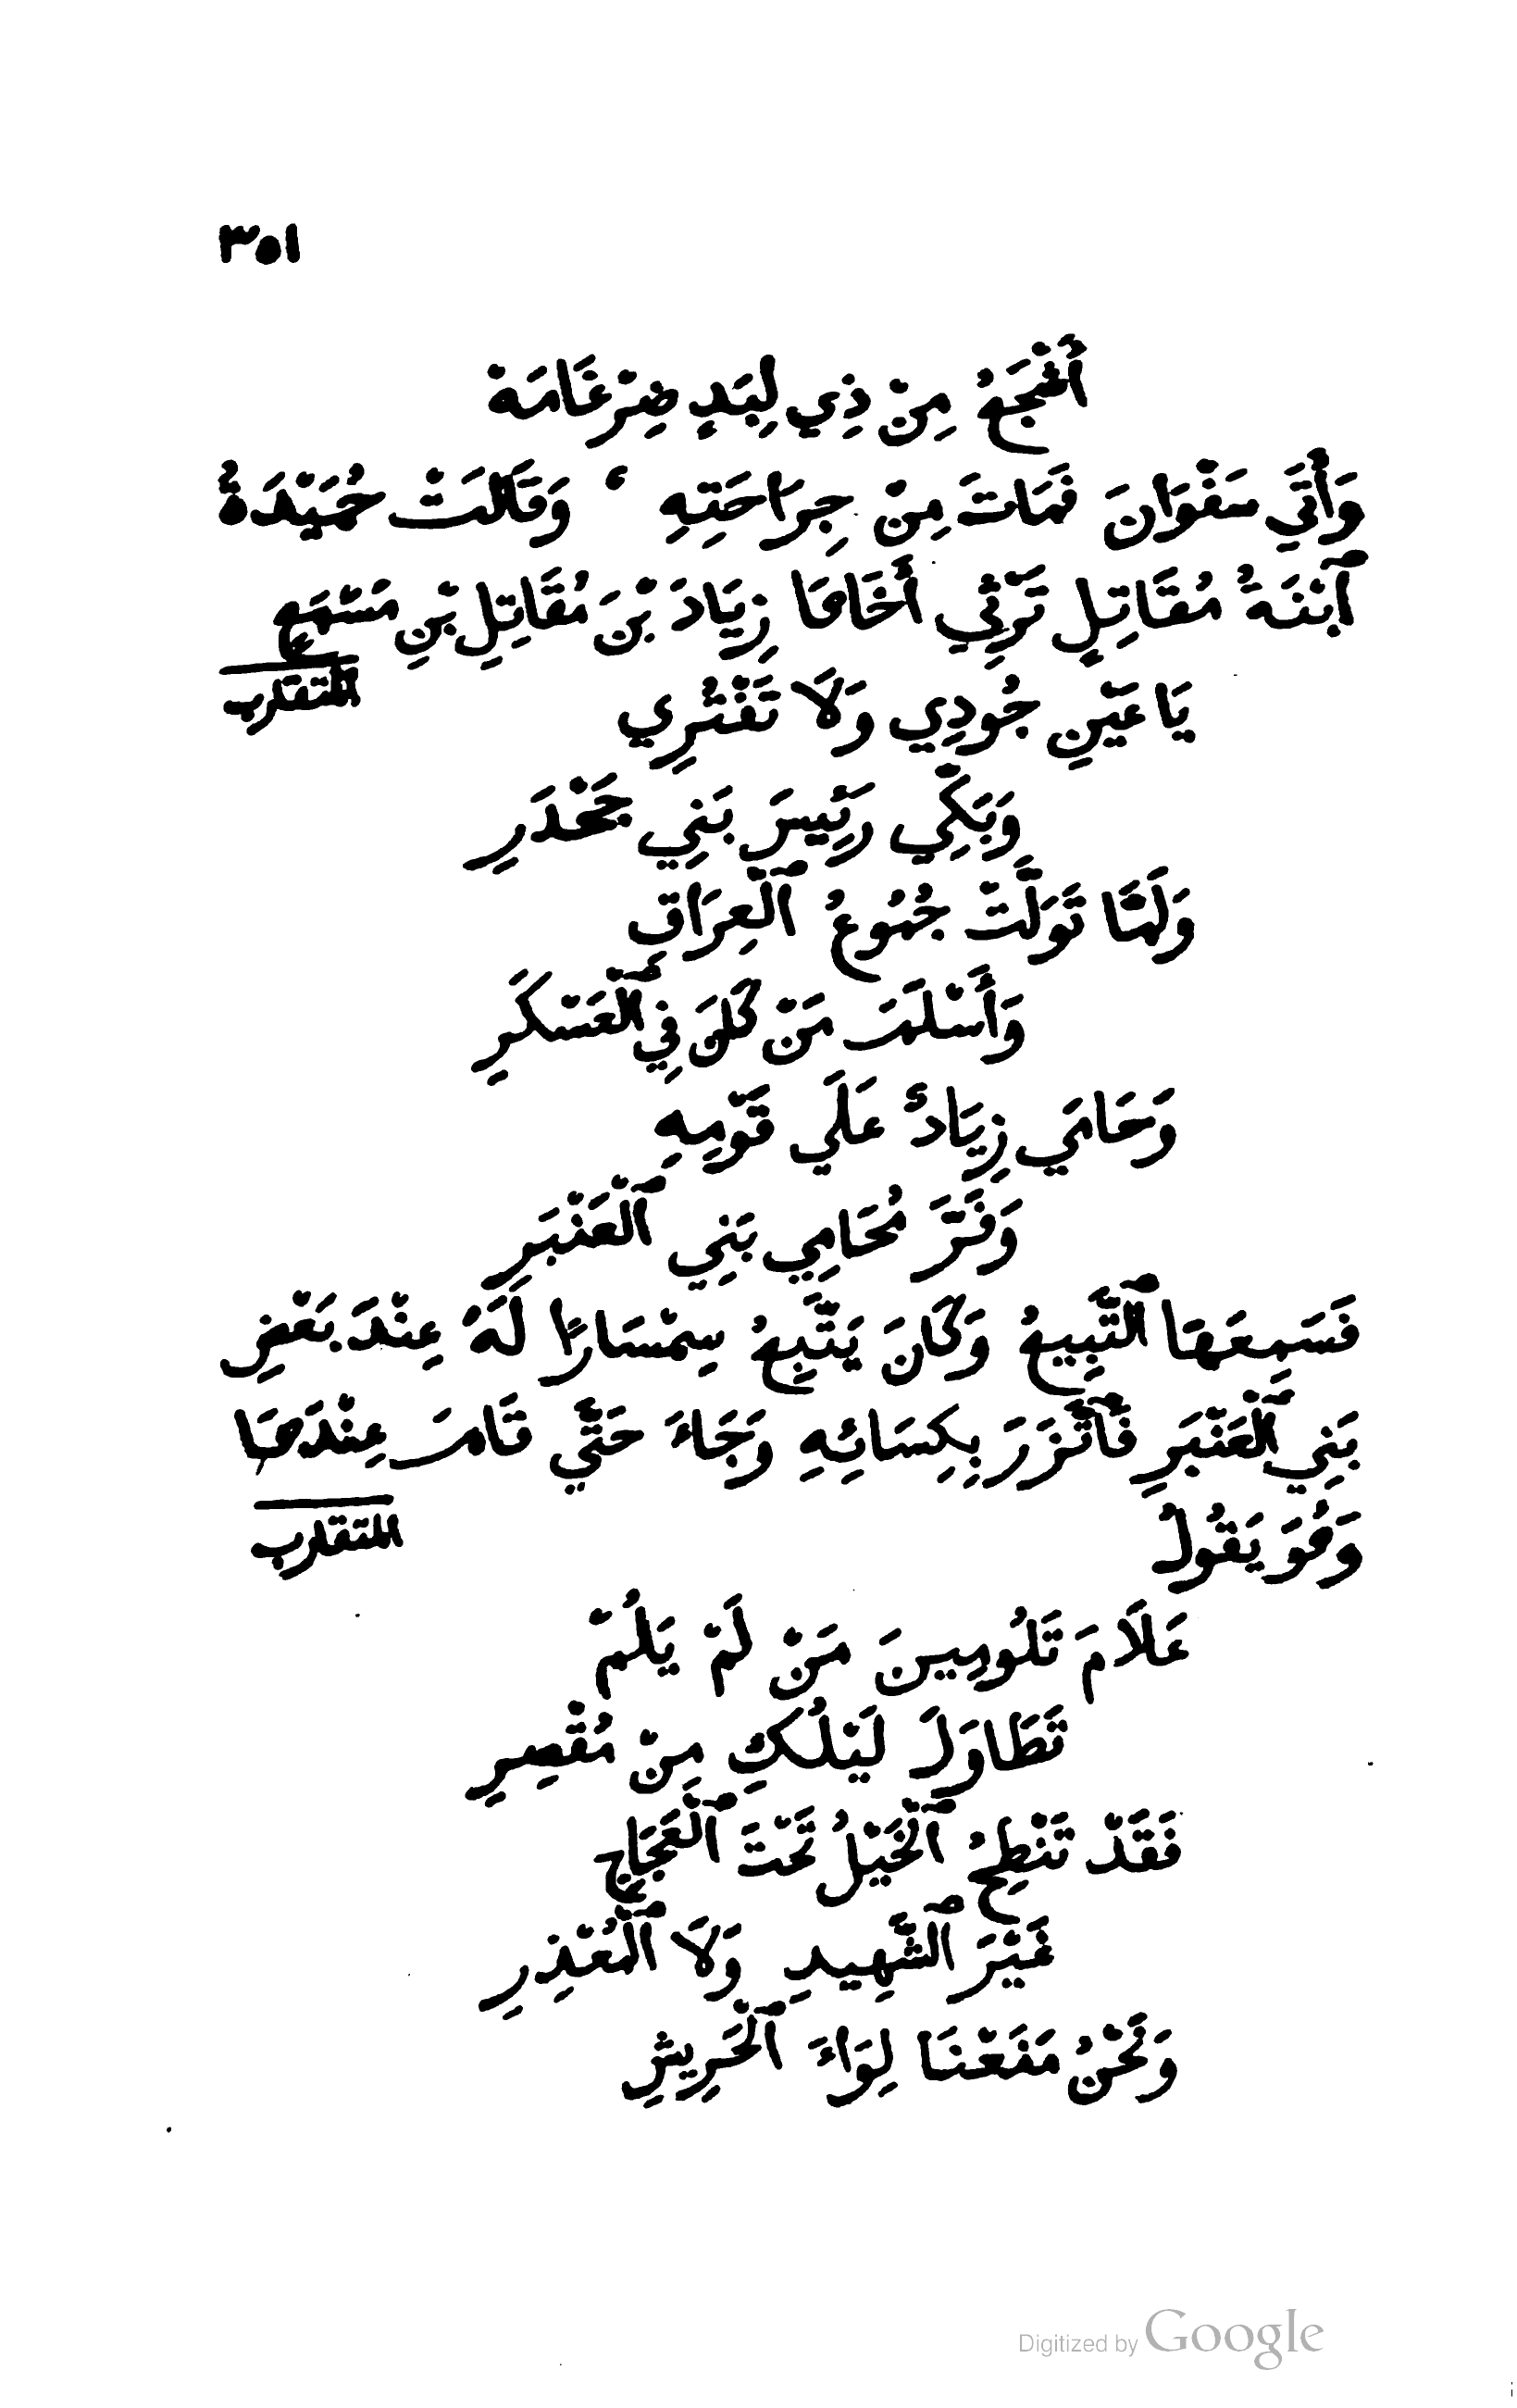 ٣٥١
أَشْجَعُ مِنْ ذِي لِبَدٍ ضِرْغَامَهْ
وَأَتَي سَفْوَانَ فَمَاتَ مِنْ جِرَاحَتِهِ ۰ وَقَالَتْ حُمَيْدَةُ
ٱبْنَةُ مُقَاتِلٍ تَرْثِي أَخَاهَا زِيَادَ بْنَ مُقَاتِلِ بْنِ مَسْمَعٍ
المتقارب
يَا عَيْنِ جُودِي وَلَا تَفْتُرِي
وَبَكِّي رَئِيسَ بَنِي جَحْدَرِ
وَلَمَّا تَوَلَّتْ جُمُوعُ ٱلْعِرَاقِ
وَأَسْلَمَ مَنْ كَانَ فِي ٱلْعَسْكَرِ
وَحَامَي زِيَادٌ عَلَي قَوْمِهِ
وَفَرَّ مُحَامِي بَنِي ٱلْعَنْبَرِ
فَسَمِعَهَا ٱلتَّبِيعُ وَكَانَ يَتَّبِعُ سِمْسَارًا لَهُ عِنْدَ بَعْضِ
بَنِي ٱلْعَنْبَرِ فَٱتَّزَرَ بِكِسَائِهِ وَجَاءَ حَتَّي قَامَ عِنْدَهَا
وَهُوَ يَقُولُ
المتقارب
عَلَامَ تَلُومِينَ مَنْ لَمْ يَلُمْ
تَطَاوَلَ لَيْلُكِ مِنْ مُقْصِرِ
فَقَدْ تَنْطِحُ ٱلْخَيْلُ تَحْتَ ٱلْعَجَاجِ
غَيْرَ ٱلشَّهِيدِ وَلَا ٱلْمُعْذِرِ
وَنَحْنُ مَنَعْنَا لِوَاءَ ٱلْحَرِيشِ
Digitized by Google